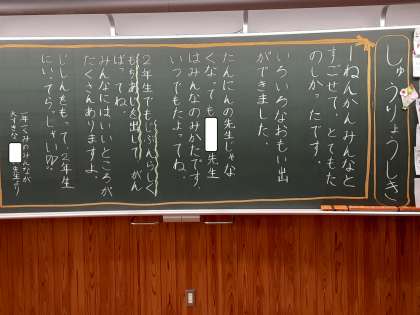 しゅうりょうしき
一ねんかんみんなと
すごせて、とてもた
のしかったです。
いろいろなおもい出
ができました。
たんにんの先生じゃな
くなっても
先生
はみんなのみかたです。
いつでもたよってね。
2年生でもじぶんらしく
もちあじを出して がん
ばってね。
みんなにはいいところが
たくさんありますよ。
じしんをもって、2年生
にいってらっしゃい
一年 くみのみんなが
大すきな
先生より